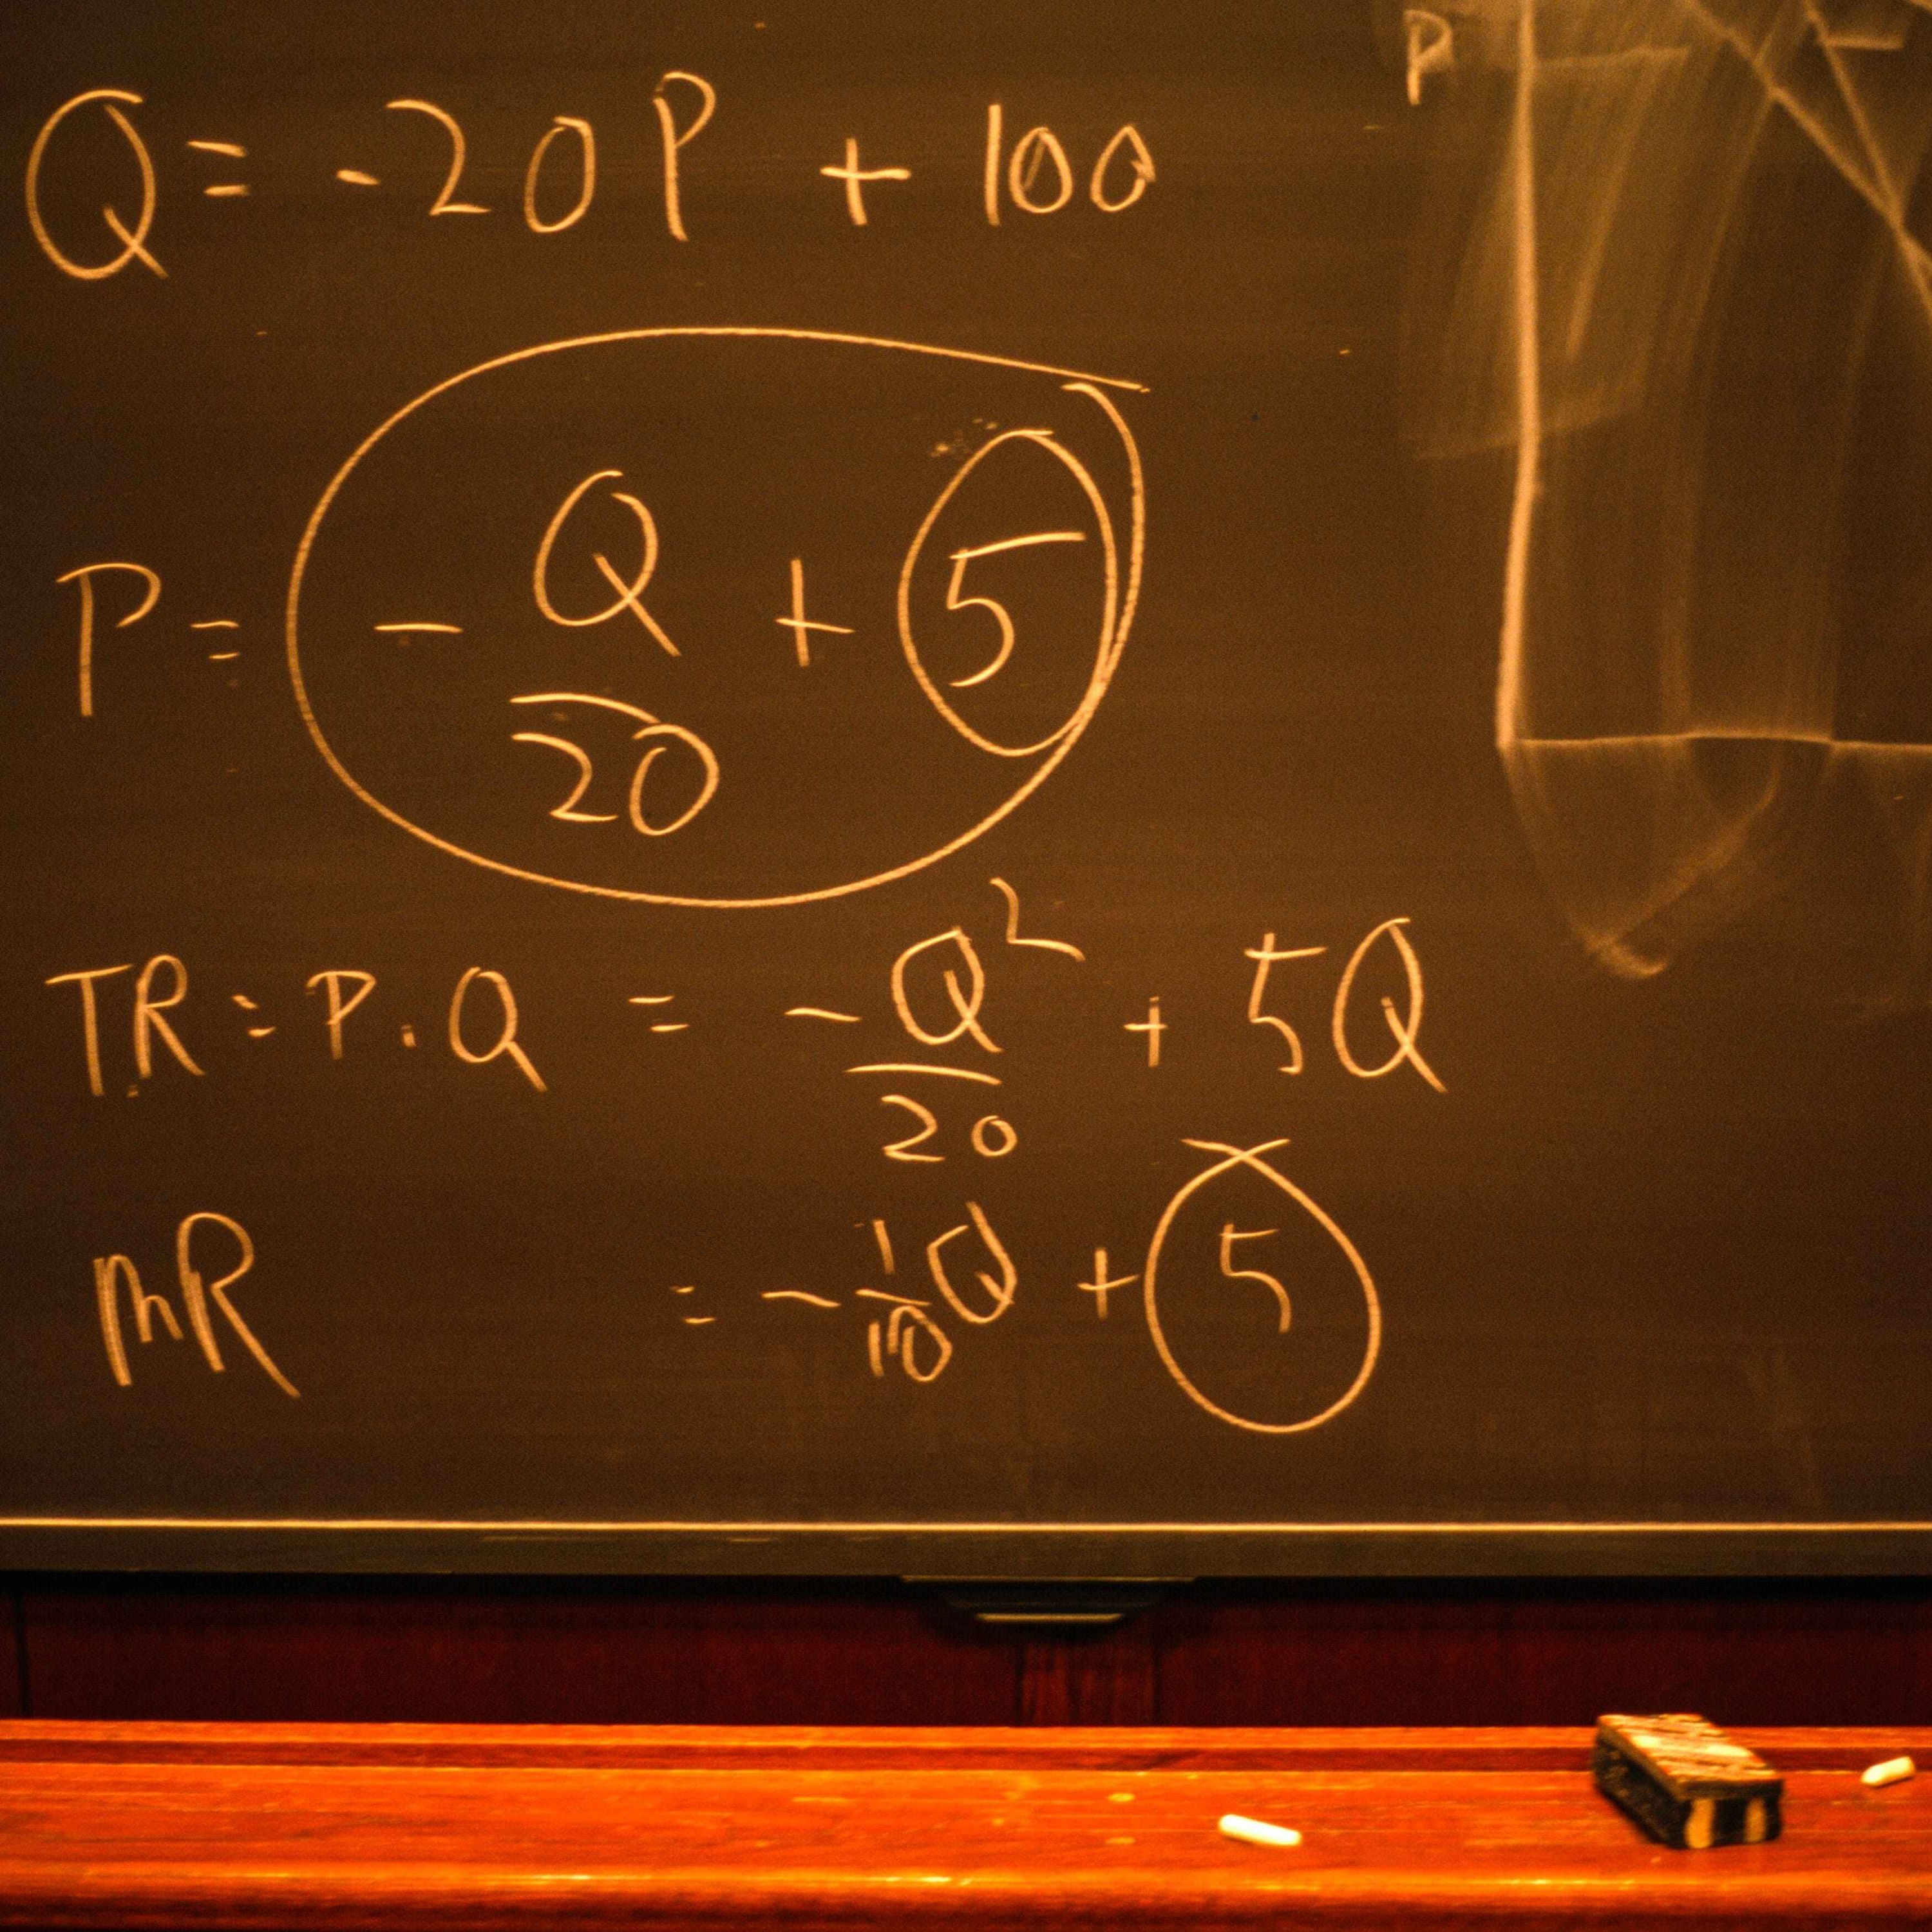 Q = -20P + 100
P
P = - Q/20 + 5
TR = P · Q = - Q²/20 + 5Q
MR = - 1/10 Q + 5